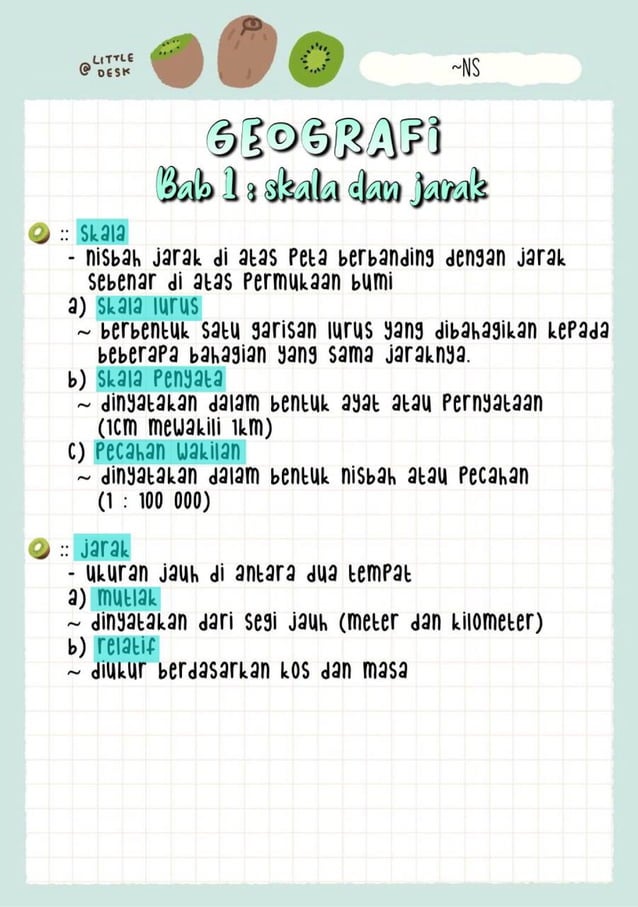 @ LITTLE
DESK
~NS
GEOGRAFi
Bab 1 : skala dan jarak
:: Skala
- nisbah jarak di atas peta berbanding dengan jarak
sebenar di atas permukaan bumi
a) Skala lurus
~ berbentuk satu garisan lurus yang dibahagikan kepada
beberapa bahagian yang sama jaraknya.
b) Skala Penyata
~ dinyatakan dalam bentuk ayat atau pernyataan
(1cm mewakili 1km)
c) Pecahan Wakilan
~ dinyatakan dalam bentuk nisbah atau pecahan
(1 : 100 000)
:: jarak
- ukuran jauh di antara dua tempat
a) mutlak
~ dinyatakan dari segi jauh (meter dan kilometer)
b) relatif
~ diukur berdasarkan kos dan masa